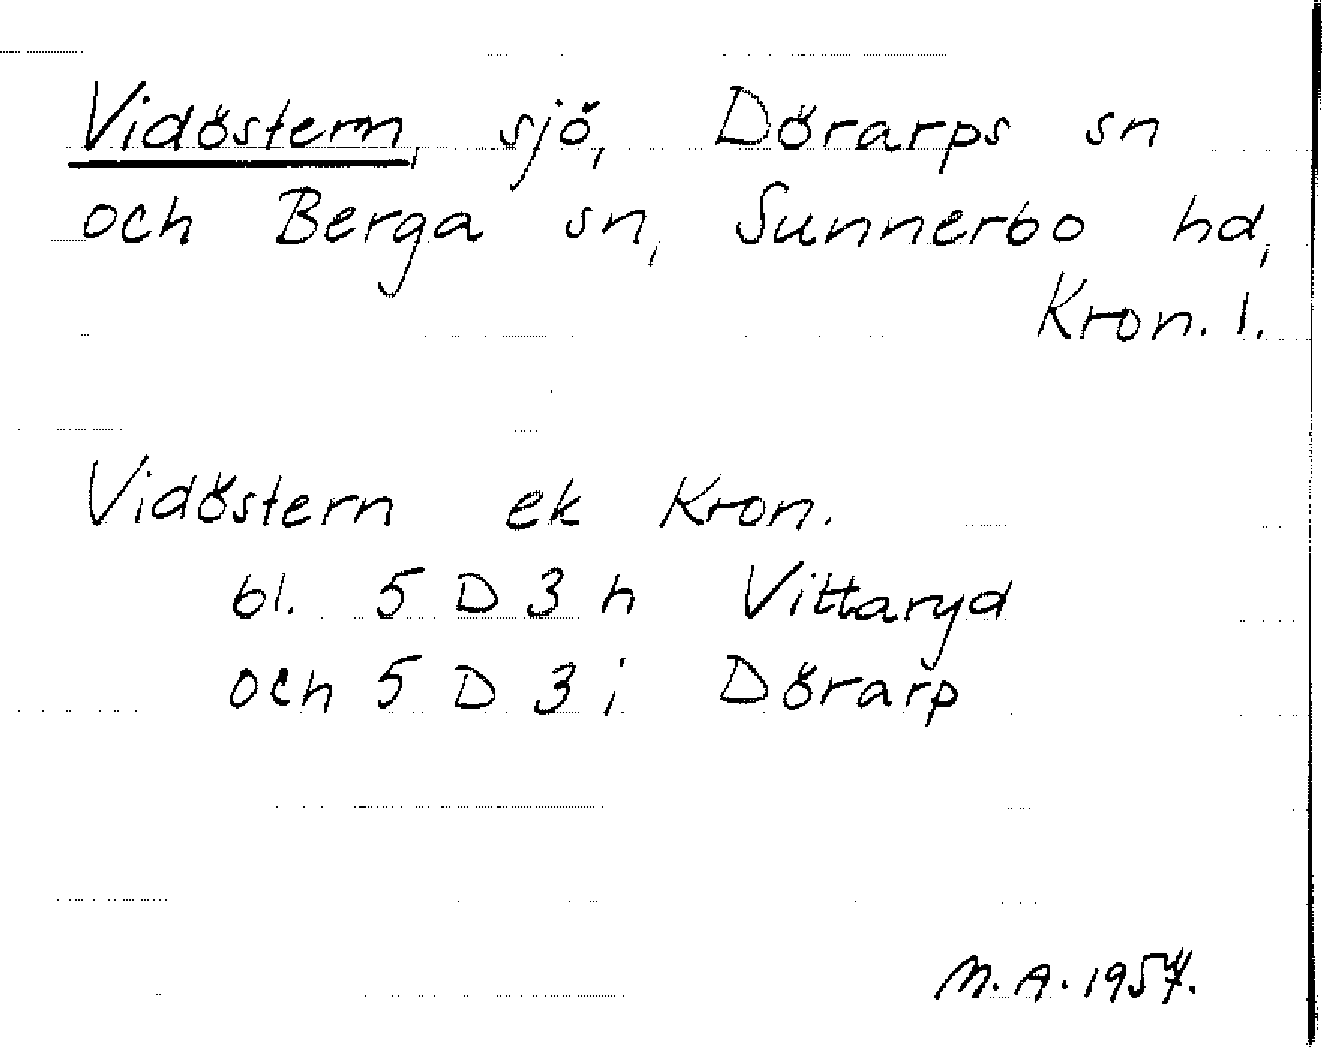 Vidöstern, sjö, Dörarps sn
och Berga sn, Sunnerbo hd,
Kron. l.
Vidöstern ek Kron.
bl. 5 D 3 h Vittaryd
och 5 D 3 i Dörarp
M. A.